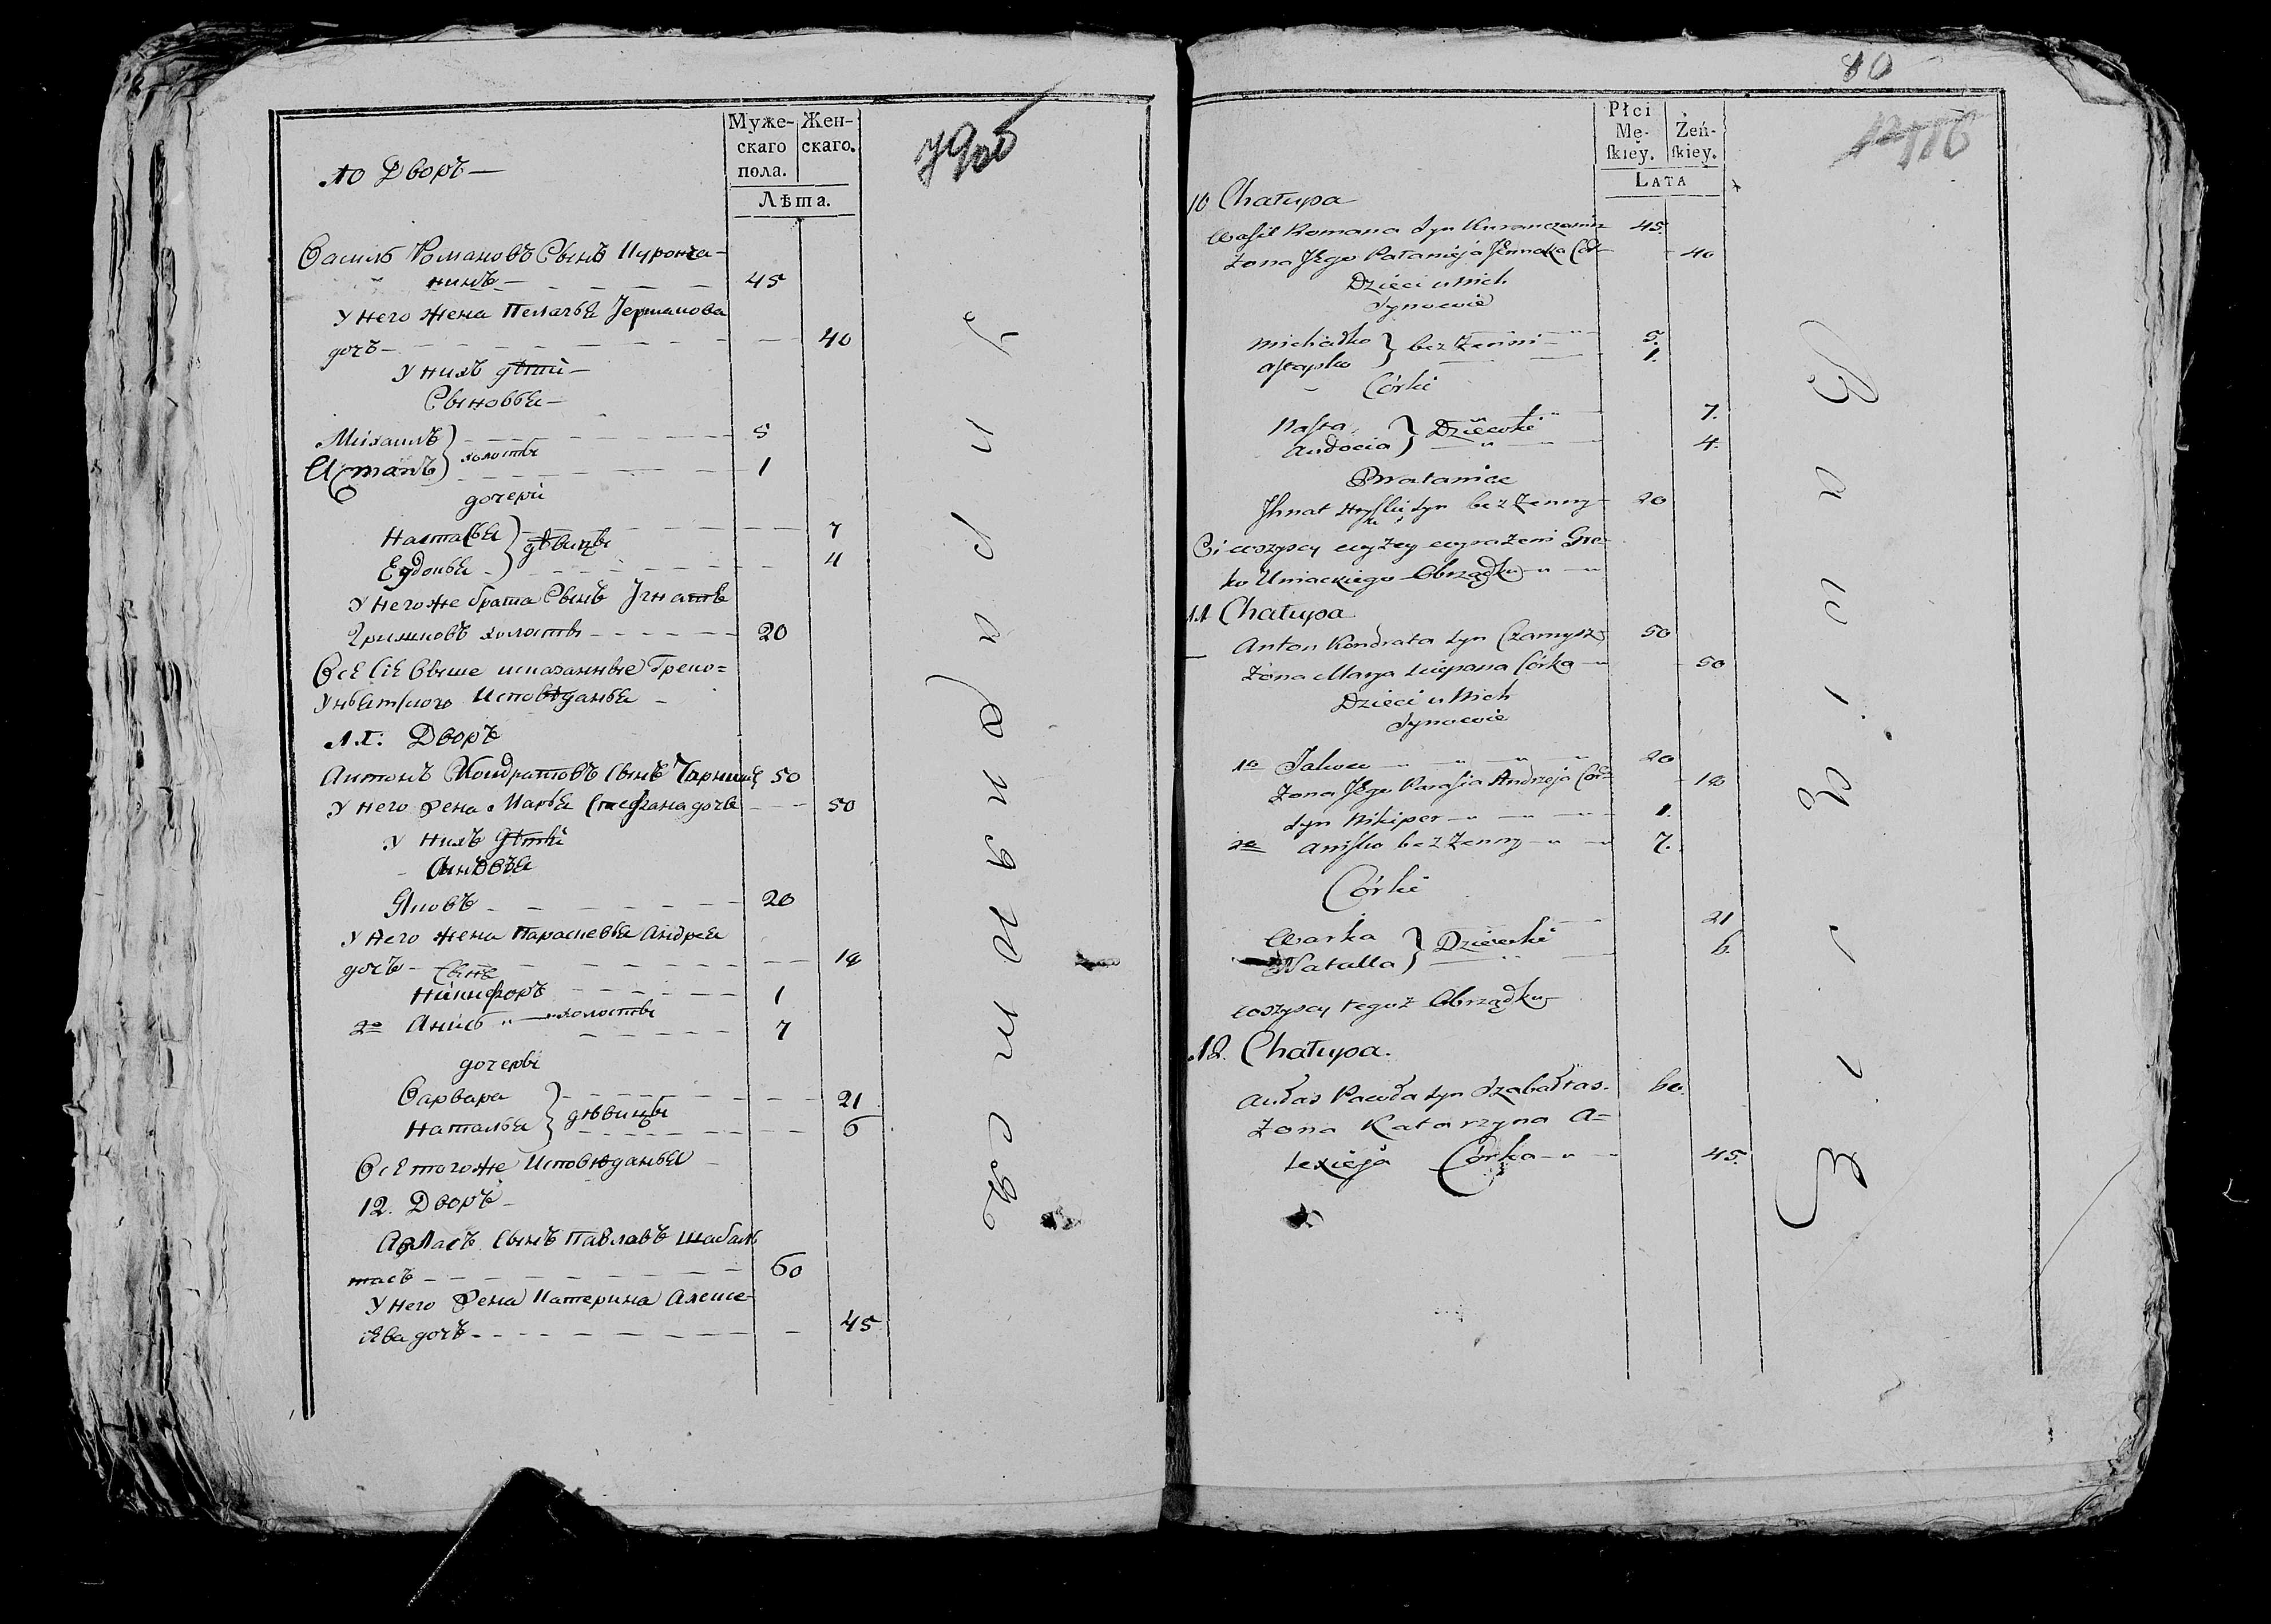 Муже-
скаго
пола.
Жен-
скаго.
Лѣта.
79об
10 Дворъ
Василь Романовъ Сынъ Куронча-
нинъ 45
У него жена Пелагѣя Іермакова
дочь 40
У нихъ дѣти
Сыновья
Михаилъ } холосты 5
Астапъ 1
дочери
Настасья } дѣвицы 7
Евдокья 4
У негоже брата Сынъ Игнатъ
Гришковъ холостъ 20
Всѣ Сіе выше исказанные Греко=
Уніятского Исповѣданья
11. Дворъ
Антонъ Кондратовъ Сынъ 50
У него жена Марья Стефана дочь 50
У нихъ дѣти
Сыновья
Яковъ 20
У Него жена Парасковья Андрея
дочь 18
Сынъ
Никифоръ 1
2е Анисъ холостъ 7
дочери
Варвара } дѣвицы 21
Наталья 6
Всѣ тогоже Исповѣданья
12. Дворъ
Авласъ Сынъ Павлавъ Шабал
тасъ 60
У него жена Катерина Алексе-
ева дочь 45
80
Płci
Mę-
ſkiey.
Żeń-
ſkiey.
Lata
10 Chałupa
Wasil Romana Syn Kuranczanin 45.
Żona Jego Pałanieja Jermaka Cór 40
Dzieci u Nich
Synowie
Michałko } bez Żenni 5.
Astapko 1.
Córki
Nasta } Dziewki 7.
Audocia 4.
Bratanice
Ihnat Hryſki Syn bez Żenny 20
Ci wszyscy wyżey wyrażeni Gre-
ko Uniackiego Obrządku
11 Chałupa
Anton Kondrata Syn Czarnysz 50
Żona Marya Sciepana Córka 50
Dzieci u Nich
Synowie
1o Jakow 20
Żona Jego Parasia Andrzeja Cór 18
Syn Nikiper 1.
2o Anisko bez Żenny 7.
Córki
Warka } Dziewki 21
Natalla 6.
wszyscy tegoż Obrządku
12. Chałupa.
Aułas Pawła Syn Szabałtas. 60.
Żona Katarzyna A=
lexieja Córka 45.